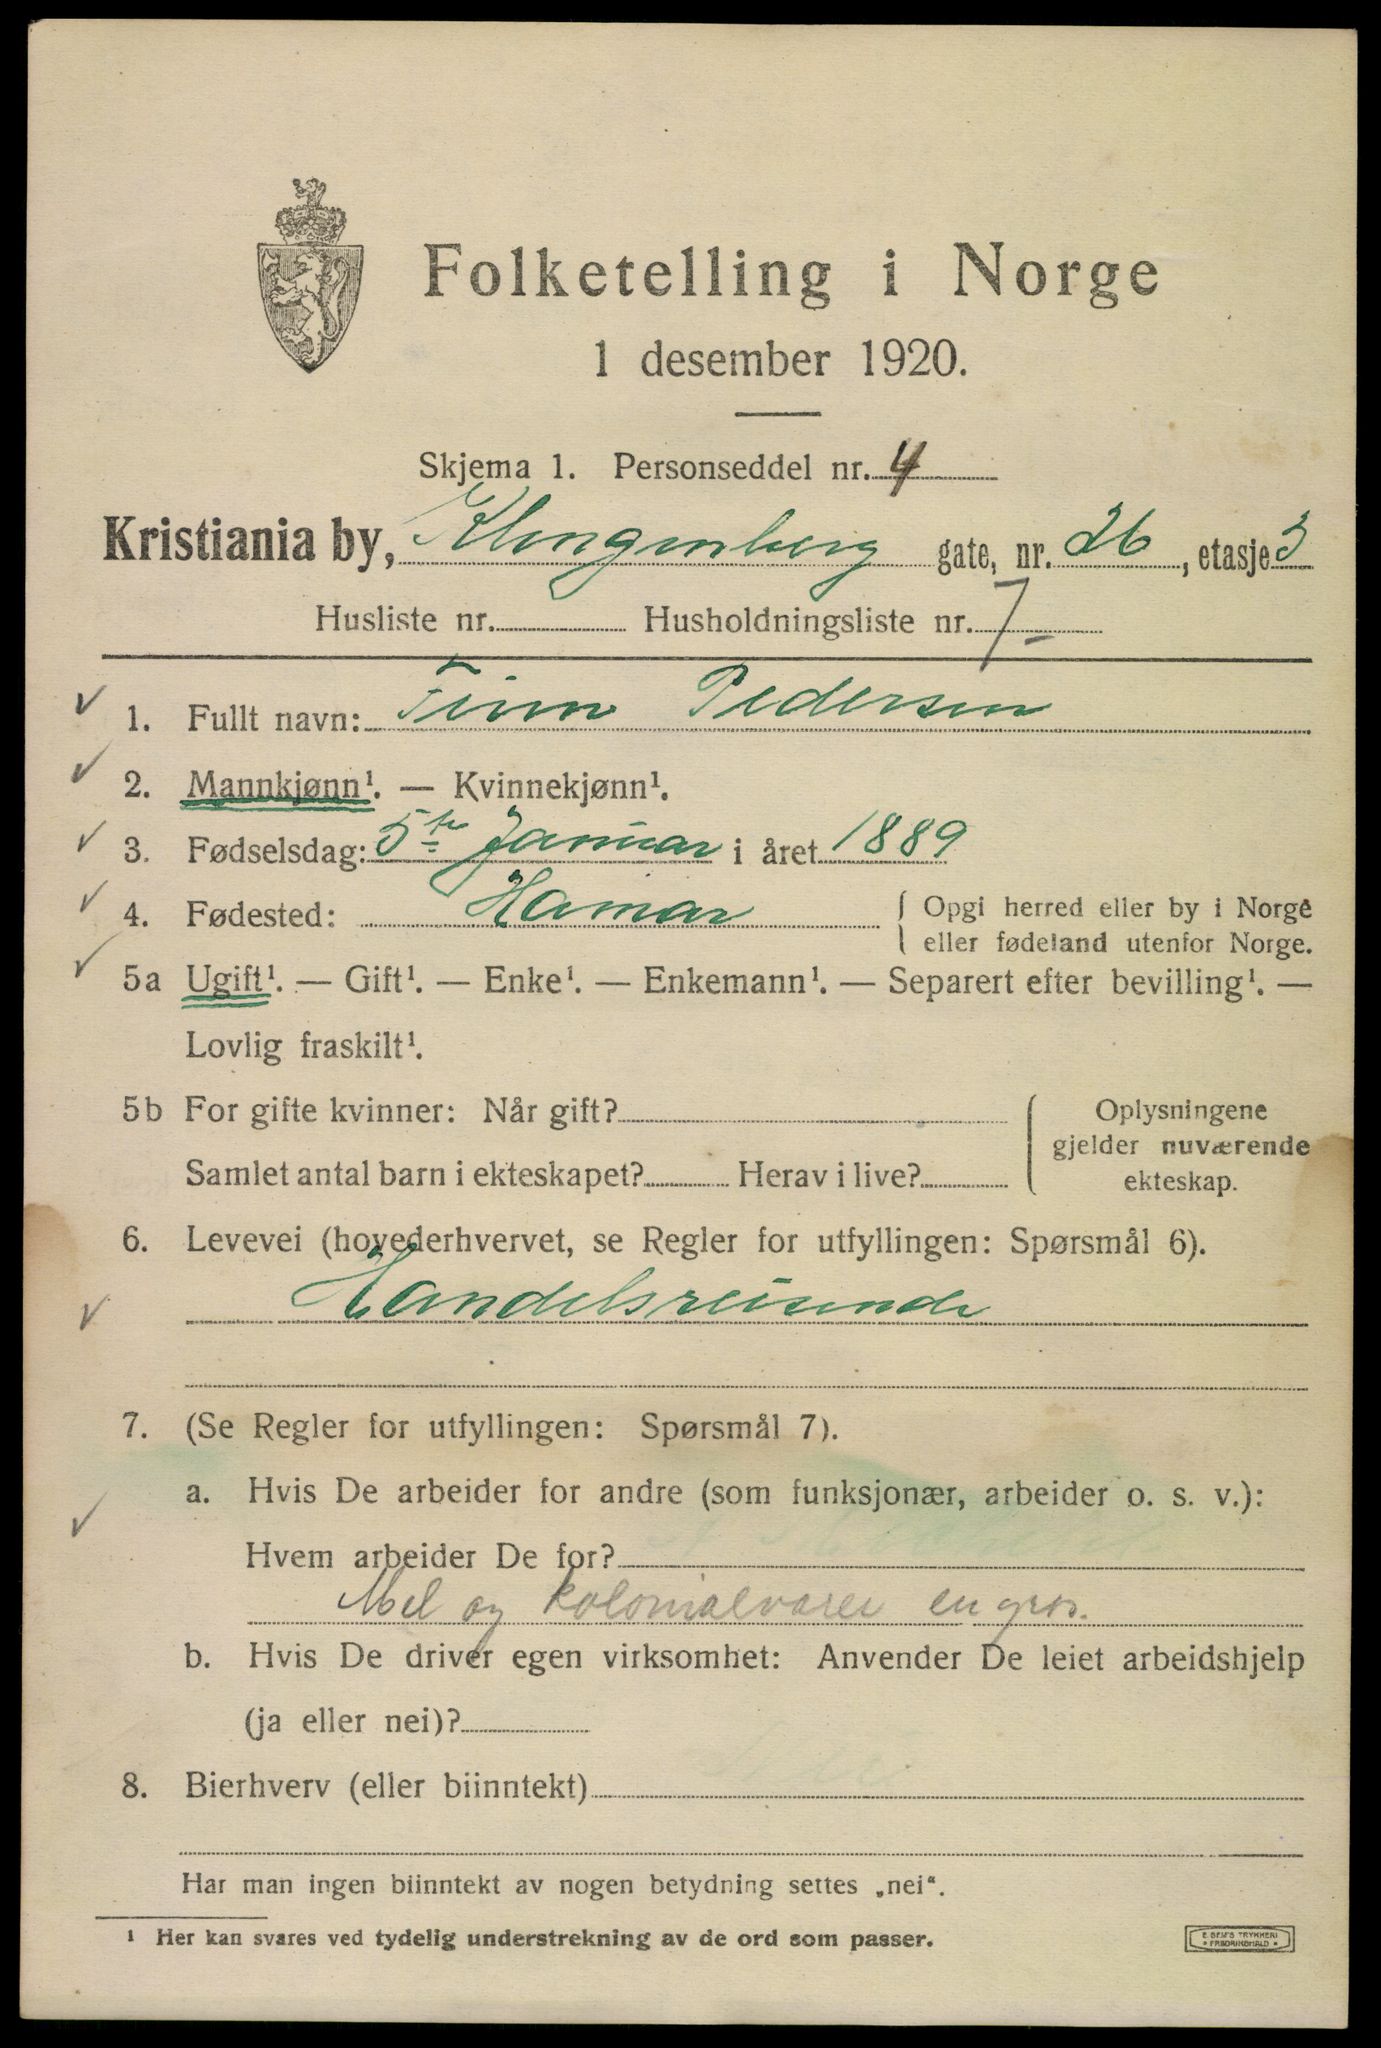 Folketelling i Norge
1 desember 1920.
Skjema 1. Personseddel nr. 4
Kristiania by, Klingenberg gate, nr. 26, etasje 3
Husliste nr. Husholdningsliste nr. 7
1. Fullt navn: Finn Pedersen
2. Mannkjønn¹. — Kvinnekjønn¹.
3. Fødselsdag: 5te Januar i året 1889
4. Fødested: Hamar { Opgi herred eller by i Norge
eller fødeland utenfor Norge.
5a Ugift¹. — Gift¹. — Enke¹. — Enkemann¹. — Separert efter bevilling¹. —
Lovlig fraskilt¹.
5b For gifte kvinner: Når gift?
Samlet antal barn i ekteskapet? Herav i live?
{ Oplysningene
gjelder nuværende
ekteskap.
6. Levevei (hovederhvervet, se Regler for utfyllingen: Spørsmål 6).
Handelsreisende
7. (Se Regler for utfyllingen: Spørsmål 7).
a. Hvis De arbeider for andre (som funksjonær, arbeider o. s. v.):
Hvem arbeider De for?
Mel og kolonialvarer en gros.
b. Hvis De driver egen virksomhet: Anvender De leiet arbeidshjelp
(ja eller nei)?
8. Bierhverv (eller biinntekt)
Har man ingen biinntekt av nogen betydning settes „nei“.
¹ Her kan svares ved tydelig understrekning av de ord som passer.
E. SEM'S TRYKKERI
FREDRIKSHALD